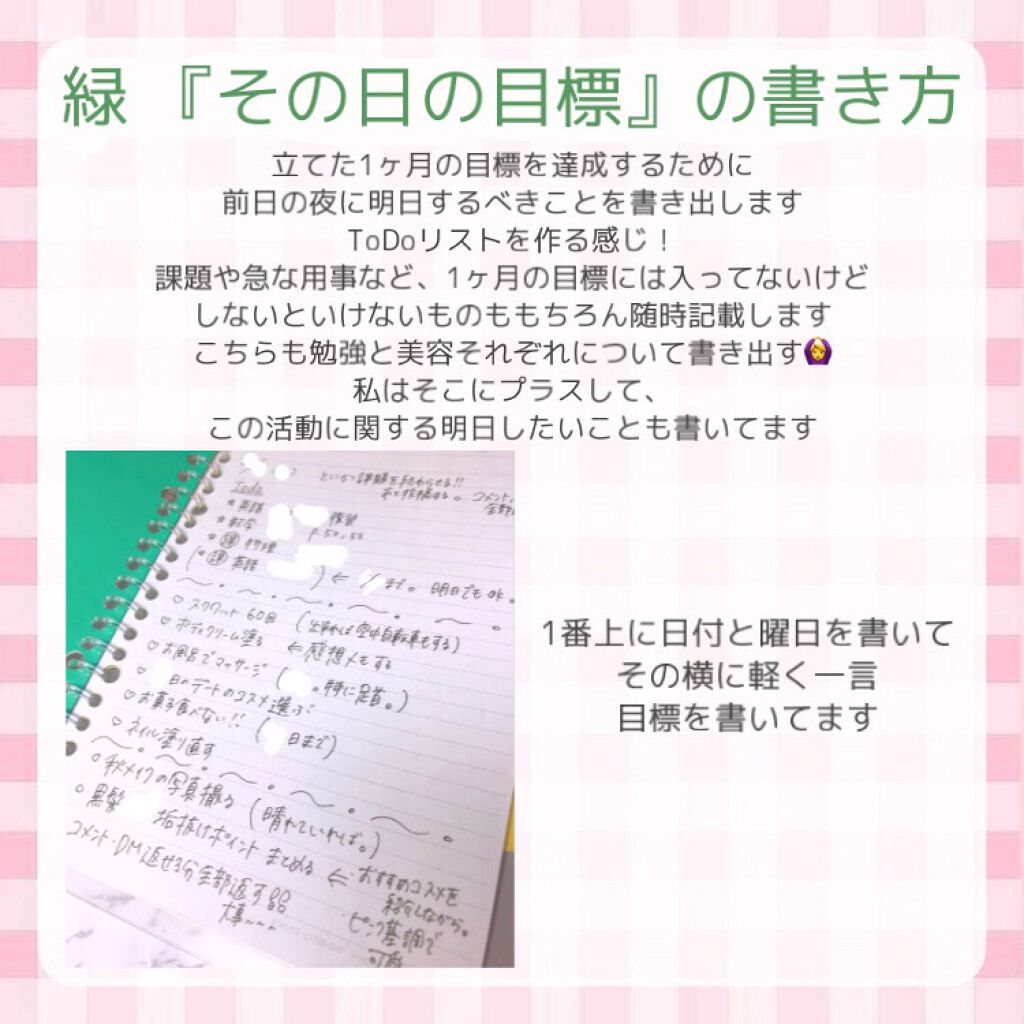 緑『その日の目標』の書き方
立てた1ヶ月の目標を達成するために
前日の夜に明日するべきことを書き出します
ToDoリストを作る感じ！
課題や急な用事など、1ヶ月の目標には入ってないけど
しないといけないものももちろん随時記載します
こちらも勉強と美容それぞれについて書き出す🙆‍♀️
私はそこにプラスして、
この活動に関する明日したいことも書いてます
とにかく課題を終わらせる!!
コメント
Todo
☆英語 復習
☆数学 P.52,53
☆課 物理
(☆課 英語 ) ← まで。明日でもok。
♡スクワット60回 (出来れば空中自転車もする)
♡ボディクリーム塗る ←感想メモする
♡お風呂でマッサージ ( 。特に足首。)
日のデートのコスメ選ぶ
♡お菓子食べない!! ( 日まで)
♡ネイル塗り直す
○秋メイクの写真撮る (晴れていれば。)
○黒髪 垢抜けポイントまとめる ←おすすめコスメを
紹介しながら。
ピンク基調で
コメント・DM返せる分全部返す
大事
1番上に日付と曜日を書いて
その横に軽く一言
目標を書いてます